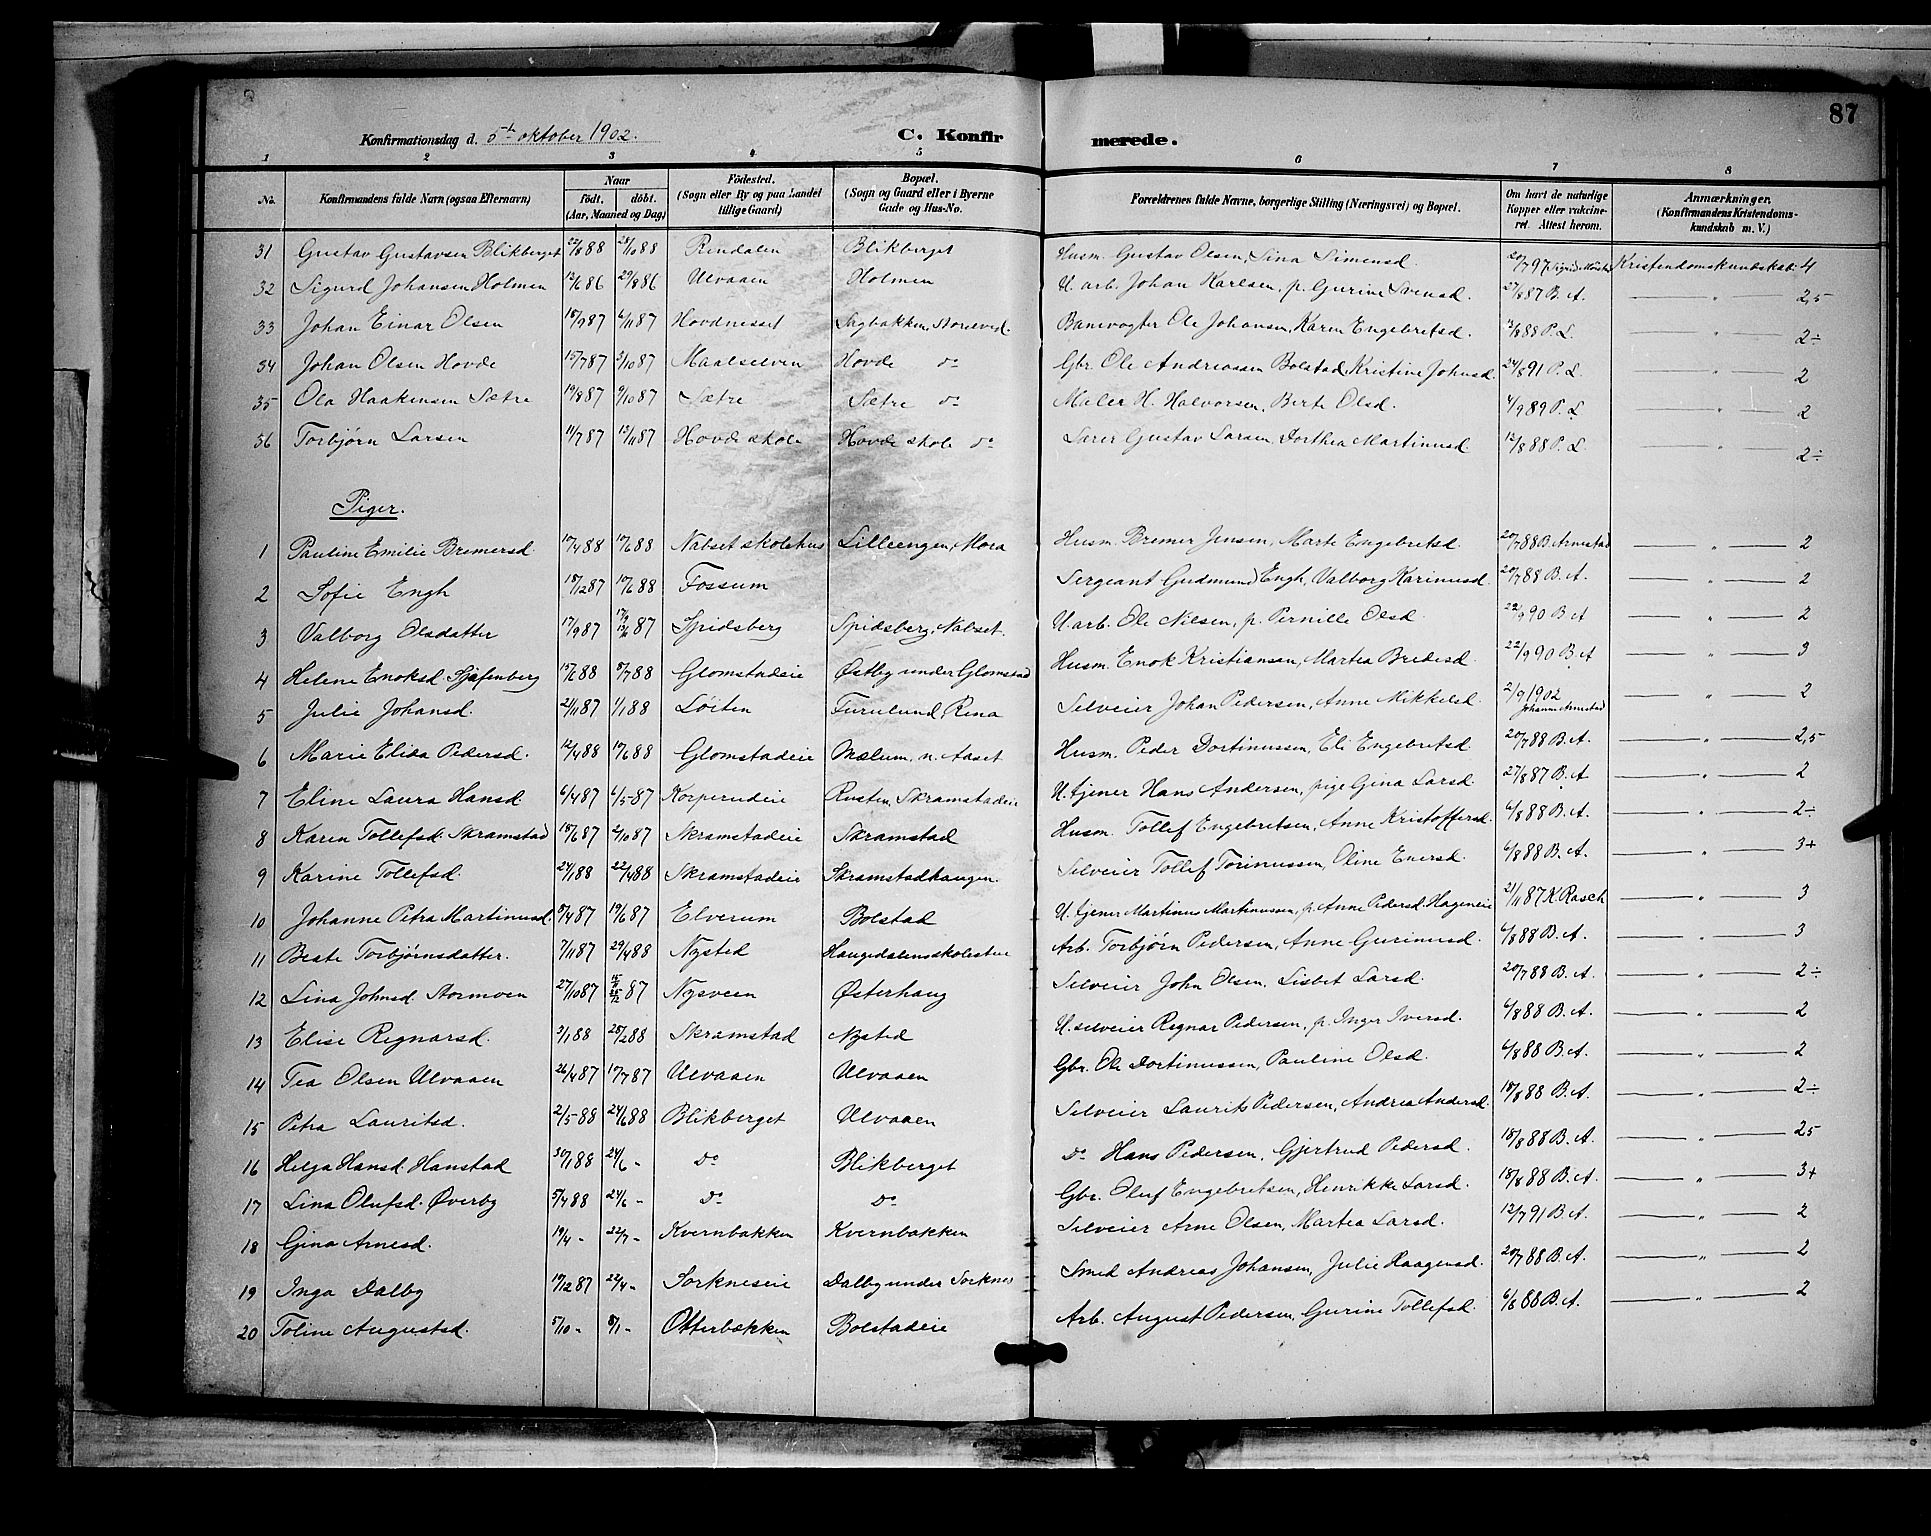 87
Konfirmationsdag d. 5te oktober 1902. C. Konfirmerede.
1 2 3 4 5 6 7 8
No. Konfirmandens fulde Navn (ogsaa Efternavn) Naar født. døbt. (Aar, Maaned og Dag) Fødested. (Sogn eller By og paa Landet tillige Gaard) Bopæl. (Sogn og Gaard eller i Byerne Gade og Hus-No. Forældrenes fulde Navne, borgerlige Stilling (Næringsvei) og Bopæl. Om havt de naturlige Kopper eller vakcineret. Attest herom. Anmærkninger. (Konfirmandens Kristendomskundskab m. V.)
31 Gustav Gustavsen Blikberget 22/8 88 28/10 88 Rendalen Blikberget Husm. Gustav Olsen, Lina Simensd. 20/7 97 Kristendomskundskab 4
32 Sigurd Johansen Holmen 12/6 86 29/8 86 Ulvaaen Holmen U. arb. Johan Karlsen, p. Gurine Svensd. 27/8 87 B. A. — " — 2,5
33 Johan Einar Olsen 18/9 87 6/11 87 Hovdneset Sagbakken, Storelvd. Banevogter Ole Johansen, Karen Engebretsd. 12/8 88 P. L. — " — 2÷
34 Johan Olsen Hovde 15/7 87 2/10 87 Maalselven Hovde do Gbr. Ole Andreassen Bolstad, Kristine Johnsd. 24/8 91 P. L. — " — 2
35 Ola Haakensen Sætre 19/8 87 9/10 87 Sætre Sætre do Maler H. Halvorsen, Berte Olsd. 4/9 89 P. L — " — 2
36 Torbjørn Larsen 11/7 87 13/11 87 Hovde skole Hovde skole do Lærer Gustav Larsen, Dorthea Martinusd. 12/8 88 P. L. — " — 2÷
Piger.
1 Pauline Emilie Bremersd. 10/4 88 17/6 88 Nabset skolehus Lilleengen, Mora Husm. Bremer Jensen, Marte Engebretsd. 20/7 88 B. Arnestad — " — 2
2 Sofie Engh 18/12 87 17/6 88 Fossum Sergeant Gudmund Engh, Valborg Karinusd. 20/7 88 B. A. — " — 2
3 Valborg Olsdatter 17/9 87 87 Spidsberg Spidsberg, Nabset. U. arb. Ole Nilsen, p. Pernille Olsd. 22/9 90 B A — " — 2
4 Helene Enoksd. 15/6 88 8/7 88 Glomstadeie Østby under Glomstad Husm. Enok Kristiansen, Martea Bredesd. 22/9 90 B. A — " — 3
5 Julie Johansd. 21/11 87 1/1 88 Löiten Furulund, Rena Selveier Johan Pedersen, Anne Mikkelsd. 2/9 1902 Johanne Arnestad — " — 2
6 Marie Elida Pedersd. 12/4 88 17/6 88 Glomstadeie Mælum, n. Aaset Husm. Peder Dortinussen, Eli Engebretsd. 20/7 88 B. A. — " — 2,5
7 Eline Laura Hansd. 6/4 87 6/5 87 Korperudeie Rusten, Skramstadeie U. tjener Hans Andersen, pige Gina Larsd. 27/8 87 B. A — " — 2
8 Karen Tollefsd. Skramstad 18/6 87 2/10 87 Skramstadeie Skramstad Husm. Tollef Engebretsen, Anne Kristoffersd. 6/8 88 B. A. — " — 2÷
9 Karine Tollefsd. 24/1 88 22/4 88 Skramstadeie Skramstadhaugen Selveier Tollef Torinussen, Oline Enersd. 6/8 88 B. A. — " — 3+
10 Johanne Petra Martinusd. 8/4 87 19/6 87 Elverum Bolstad U. tjener Martinus Martinussen, p. Anne Pedersd. Hageneie 21/11 87 K Rasch — " — 3
11 Beate Torbjørnsdatter. 7/11 87 29/4 88 Nysted Haugedalensskolestue Arb. Torbjørn Pedersen, Anne Gurinusd. 6/8 88 B. A. — " — 3
12 Lina Johnsd. Stormoen 27/10 87 87 Nysveen Østerhaug Selveier John Olsen, Lisbet Larsd. 20/7 88 B. A. — " — 2÷
13 Elise Regnarsd. 3/1 88 28/2 88 Skramstad Nysted U. selveier Regnar Pedersen, p. Inger Iversd. 6/8 88 B. A. — " — 2
14 Tea Olsen Ulvaaen 26/4 87 17/7 87 Ulvaaen Ulvaaen Gbr. Ole Dortinussen, Pauline Olsd. 6/8 88 B. A. — " — 2
15 Petra Lauritsd. 2/5 88 24/6 88 Blikberget Ulvaaen Selveier Laurits Pedersen, Andrea Andersd. 18/8 88 B. A. — " — 2÷
16 Helga Hansd. Hanstad 30/1 88 24/6 - do Blikberget do Hans Pedersen, Gjertrud Pedersd. 18/8 88 B. A. — " — 25
17 Lina Olufsd. Øverby 5/4 88 24/6 - do do Gbr. Oluf Engebretsen, Henrikke Larsd. 18/8 88 B. A. — " — 3+
18 Gina Arnesd. 19/4 - 22/7 - Kvernbakken Kvernbakken Selveier Arne Olsen, Martea Larsd. 12/7 91 B. A. — " — 2
19 Inga Dalby 19/12 87 22/4 - Sorkneseie Dalby under Sorknes Smed Andreas Johansen, Julie Haagensd. 20/7 88 B. A. — " — 2
20 Toline Augustsd. 5/10 - 8/1 - Otterbækken Bolstadeie Arb. August Pedersen, Gurine Tollefsd. 6/8 88 B. A. — " — 2